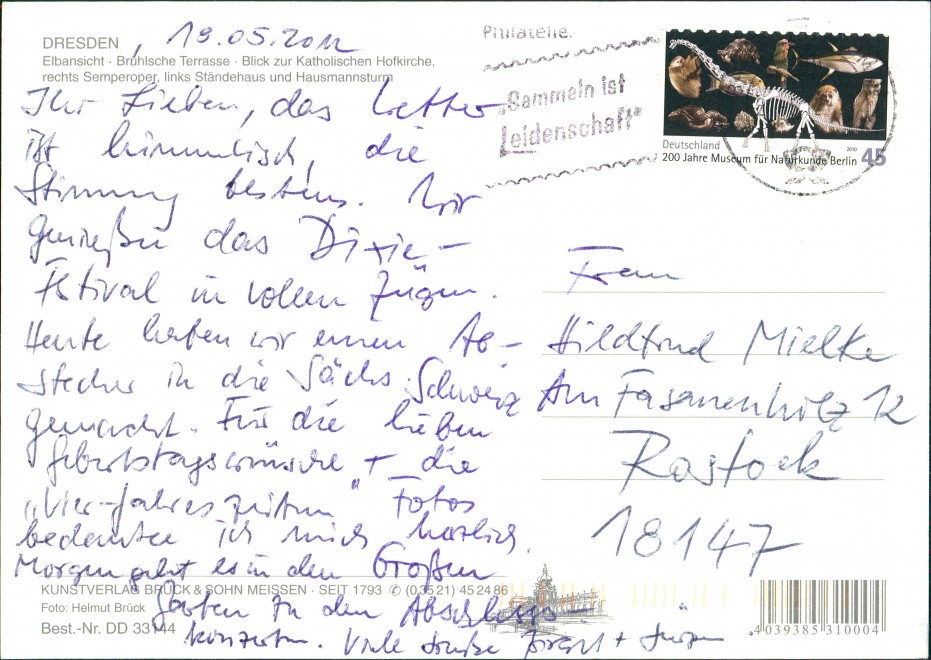 DRESDEN, 19.05.2012
Elbansicht · Brühlsche Terrasse · Blick zur Katholischen Hofkirche,
rechts Semperoper, links Ständehaus und Hausmannsturm
Ihr Lieben, das Wetter
ist himmlisch, die
Stimmung bestens. Wir
genießen das Dixie-
Festival in vollen Zügen.
Heute haben wir einen Ab-
stecher in die Sächs. Schweiz
gemacht. Für die lieben
Geburtstagswünsche + die
„Vier-Jahreszeiten" Fotos
bedanke ich mich herzlich.
Morgen geht es in den Großen
Garten zu den Abschluss-
konzerten. Viele Grüße + Jürgen
KUNSTVERLAG BRÜCK & SOHN MEISSEN · SEIT 1793 ✆ (03521) 45 24 86
Foto: Helmut Brück
Best.-Nr. DD 33144
Philatelie.
„Sammeln ist
Leidenschaft"
Deutschland
2010
200 Jahre Museum für Naturkunde Berlin 45
Frau
Hildtrud Mielke
Am Fasanenholz 12
Rostock
18147
4 039385 310004